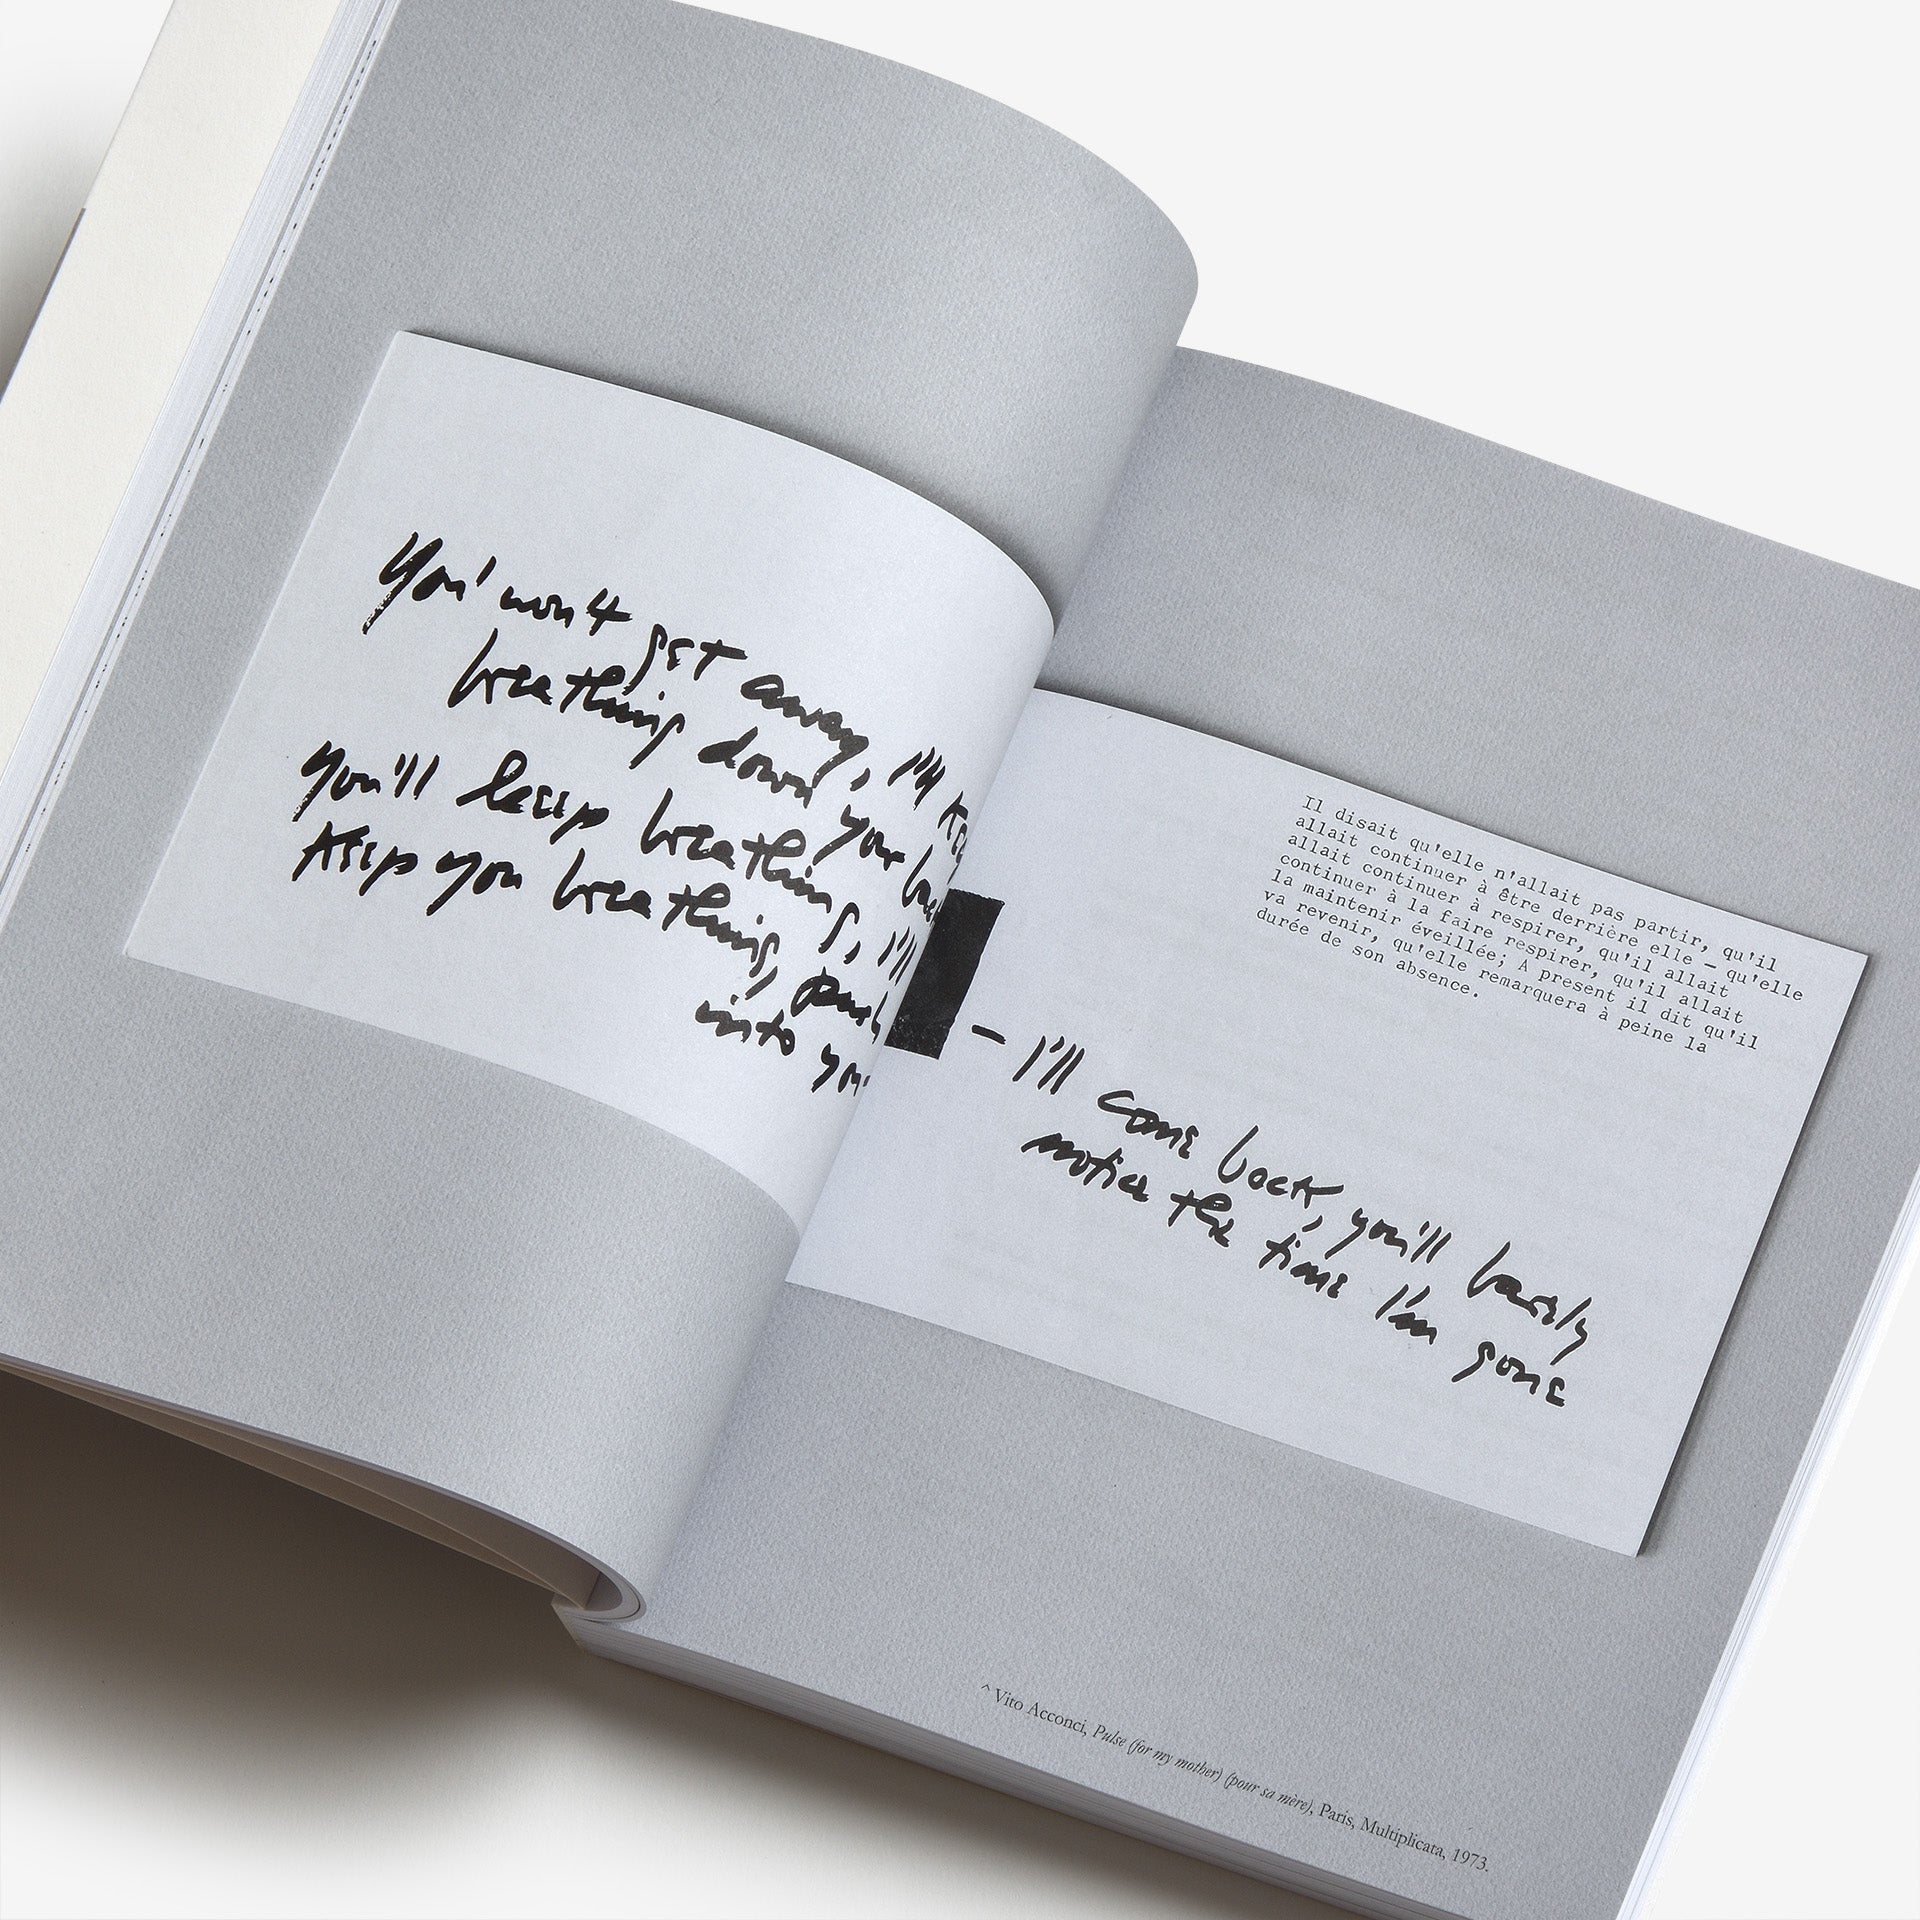 You' won't get away, I'll
breathing down your
You'll keep breathing, I'll
keep you breathing,
into
Il disait qu'elle n'allait pas partir, qu'il
allait continuer à être derrière elle — qu'elle
allait continuer à respirer, qu'il allait
continuer à la faire respirer, qu'il allait
la maintenir éveillée; A present il dit qu'il
va revenir, qu'elle remarquera à peine la
durée de son absence.
— I'll come back, you'll barely
notice the time I'm gone
^ Vito Acconci, Pulse (for my mother) (pour sa mère), Paris, Multiplicata, 1973.